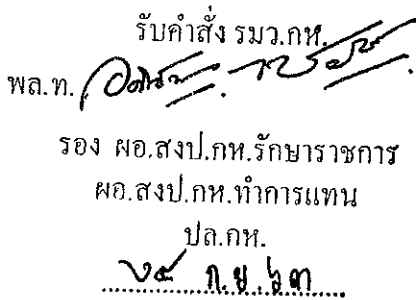 รับคำสั่ง รมว.กห.
พล.ท.
รอง ผอ.สงป.กห.รักษาราชการ
ผอ.สงป.กห.ทำการแทน
ปล.กห.
ก.ย. ๖๓